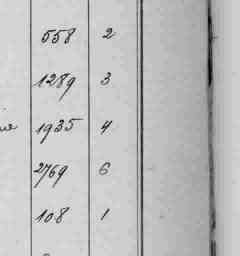 558 2
1289 3
1935 4
2769 6
108 1